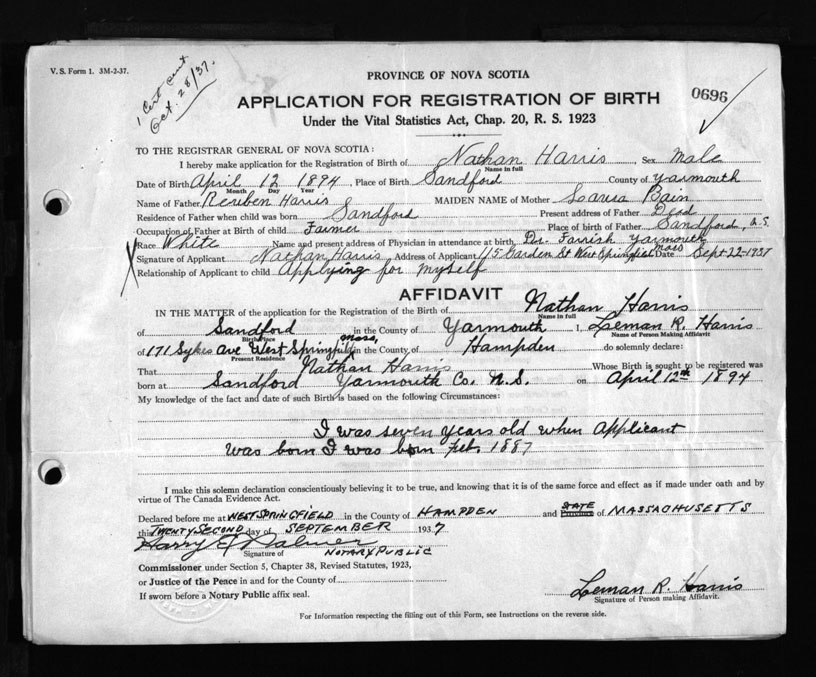 V. S. Form 1. 3M-2-37.
1 Cert sent
Oct. 28/37.
PROVINCE OF NOVA SCOTIA
APPLICATION FOR REGISTRATION OF BIRTH
0696
Under the Vital Statistics Act, Chap. 20, R. S. 1923
TO THE REGISTRAR GENERAL OF NOVA SCOTIA:
I hereby make application for the Registration of Birth of Nathan Harris, Sex Male
Name in full
Date of Birth April 12 1894, Place of Birth Sandford County of Yarmouth
Month Day Year
Name of Father Reuben Harris MAIDEN NAME of Mother Louisa Bain
Residence of Father when child was born Sandford Present address of Father Dead
Occupation of Father at Birth of child Farmer Place of birth of Father Sandford, N.S.
Race White Name and present address of Physician in attendance at birth, Dr. Farrish Yarmouth
Signature of Applicant Nathan Harris Address of Applicant 115 Garden St West Springfield Mass Date Sept-22-1937
Relationship of Applicant to child Applying for myself
AFFIDAVIT
IN THE MATTER of the application for the Registration of the Birth of Nathan Harris
Name in full
of Sandford in the County of Yarmouth I, Leman R. Harris
Birth Place Name of Person Making Affidavit
of 171 Sykes Ave West Springfield Mass, in the County of Hampden do solemnly declare:
Present Residence
That Nathan Harris Whose Birth is sought to be registered was
born at Sandford Yarmouth Co. N.S. on April 12th 1894
My knowledge of the fact and date of such Birth is based on the following Circumstances:
I was seven years old when applicant
was born I was born Feb. 1887
I make this solemn declaration conscientiously believing it to be true, and knowing that it is of the same force and effect as if made under oath and by
virtue of The Canada Evidence Act.
Declared before me at WEST SPRINGFIELD in the County of HAMPDEN and STATE Province of MASSACHUSETTS
this TWENTY-SECOND day of SEPTEMBER 1937
Harry E. Palmer
Signature of NOTARY PUBLIC
Commissioner under Section 5, Chapter 38, Revised Statutes, 1923,
or Justice of the Peace in and for the County of
Leman R. Harris
If sworn before a Notary Public affix seal.
Signature of Person making Affidavit.
For Information respecting the filling out of this Form, see Instructions on the reverse side.